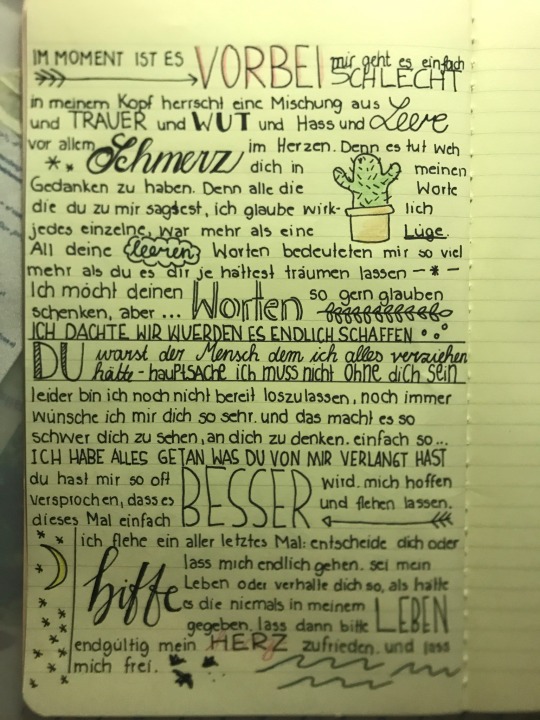 IM MOMENT IST ES VORBEI mir geht es einfach SCHLECHT
in meinem Kopf herrscht eine Mischung aus
und TRAUER und WUT und Hass und Leere
vor allem Schmerz im Herzen. Denn es tut weh
dich in meinen
Gedanken zu haben. Denn alle die Worte
die du zu mir sagtest, ich glaube wirk- lich
jedes einzelne, war mehr als eine Lüge.
All deine leeren Worten bedeuteten mir so viel
mehr als du es dir je hättest träumen lassen
Ich möcht deinen Worten so gern glauben
schenken, aber ...
ICH DACHTE WIR WUERDEN ES ENDLICH SCHAFFEN
DU warst der Mensch dem ich alles verziehen
hätte - hauptsache ich muss nicht ohne dich sein
leider bin ich noch nicht bereit loszulassen, noch immer
wünsche ich mir dich so sehr. und das macht es so
schwer dich zu sehen, an dich zu denken. einfach so...
ICH HABE ALLES GETAN WAS DU VON MIR VERLANGT HAST
du hast mir so oft
versprochen, dass es BESSER wird. mich hoffen
dieses Mal einfach und flehen lassen.
ich flehe ein aller letztes Mal: entscheide dich oder
lass mich endlich gehen. sei mein
bitte Leben oder verhalte dich so, als hätte
es die niemals in meinem LEBEN
gegeben. lass dann bitte
endgültig mein HERZ zufrieden. und lass
mich frei.